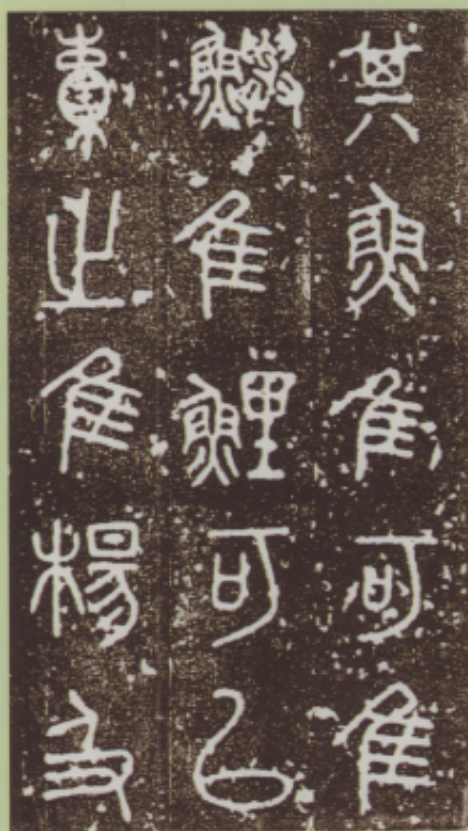 其魚隹可隹
鱮隹鯉可㠯
橐之隹楊及